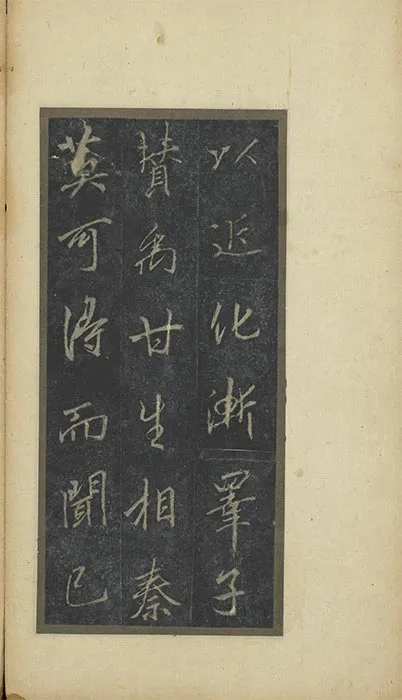 以近化漸睪子
賛禹甘生相秦
莫可得而聞已